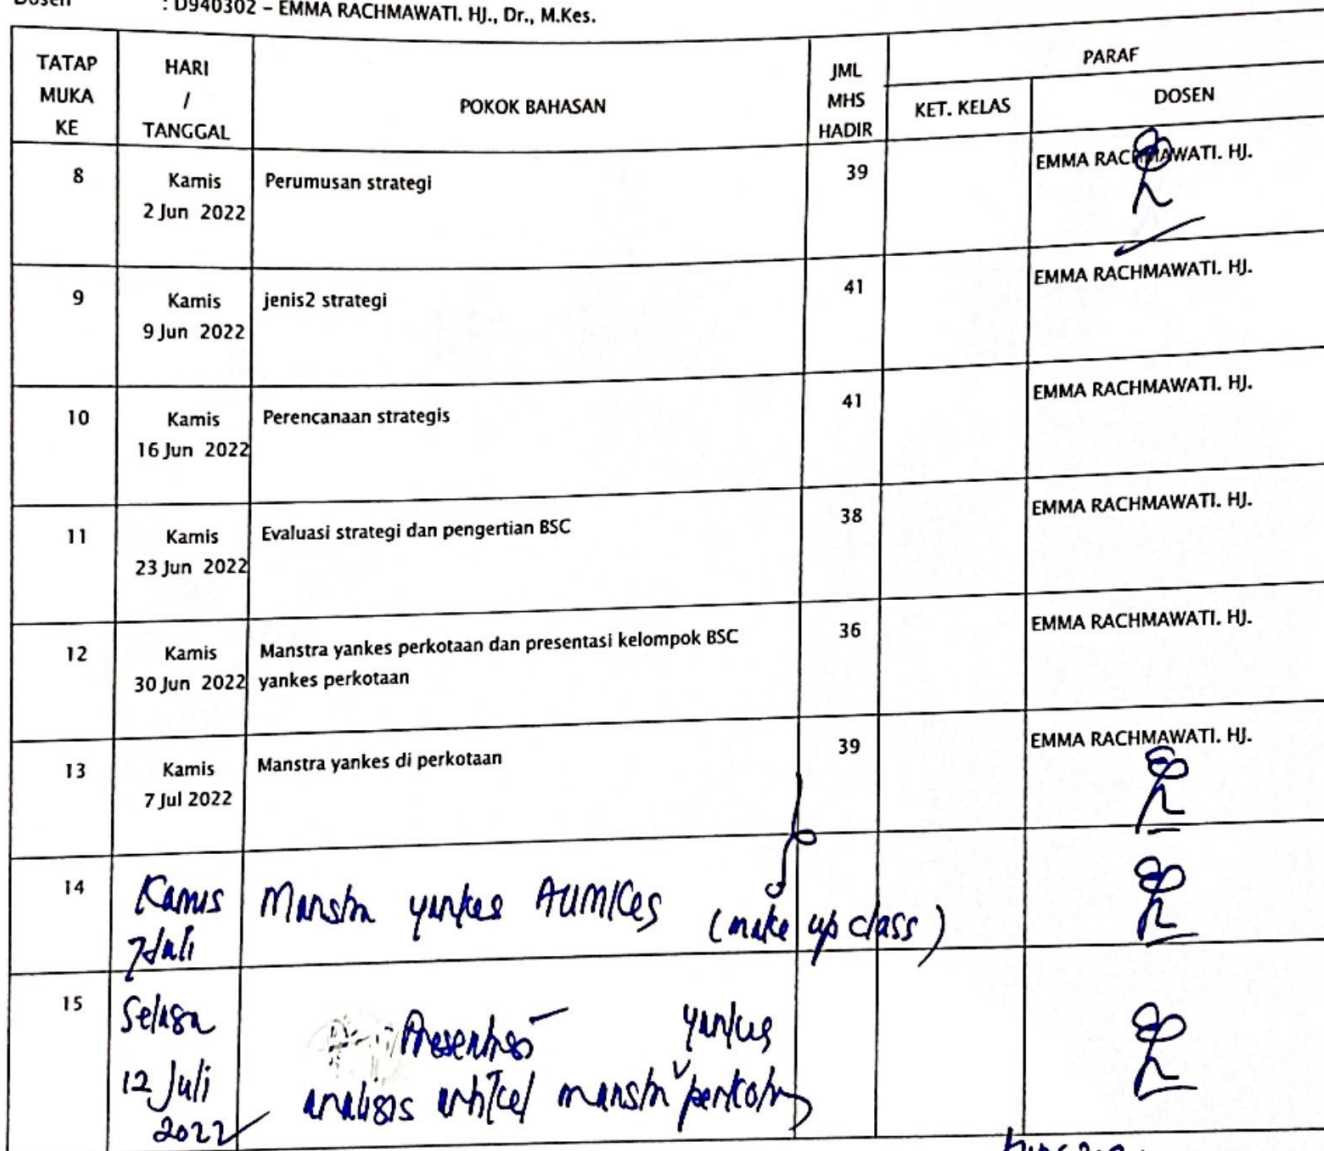 Dosen : D940302 – EMMA RACHMAWATI. HJ., Dr., M.Kes.
TATAP MUKA KE
HARI / TANGGAL
POKOK BAHASAN
JML MHS HADIR
PARAF
KET. KELAS
DOSEN
8
Kamis
2 Jun 2022
Perumusan strategi
39
EMMA RACHMAWATI. HJ.
9
Kamis
9 Jun 2022
jenis2 strategi
41
EMMA RACHMAWATI. HJ.
10
Kamis
16 Jun 2022
Perencanaan strategis
41
EMMA RACHMAWATI. HJ.
11
Kamis
23 Jun 2022
Evaluasi strategi dan pengertian BSC
38
EMMA RACHMAWATI. HJ.
12
Kamis
30 Jun 2022
Manstra yankes perkotaan dan presentasi kelompok BSC
yankes perkotaan
36
EMMA RACHMAWATI. HJ.
13
Kamis
7 Jul 2022
Manstra yankes di perkotaan
39
EMMA RACHMAWATI. HJ.
14
Kamis
7 Juli
Manstra yankes AUMKes (make up class)
15
Selasa
12 Juli
2022
Presentasi yankes
analisis artikel manstra perkotaan